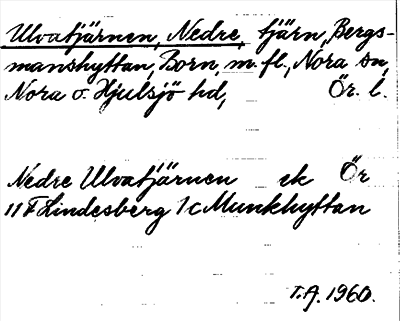 Ulvatjärnen, Nedre, tjärn, Bergs-
manshyttan, Born, m. fl., Nora sn,
Nora o. Hjulsjö hd, Ör. l.
Nedre Ulvatjärnen ek Ör
11 F Lindesberg 1 c Munkhyttan
T.A. 1960.